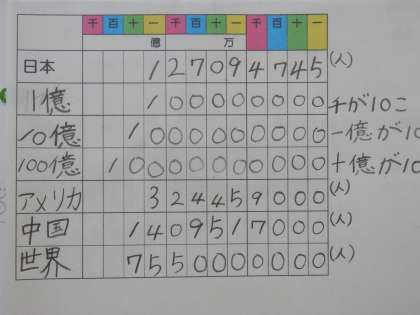 千 百 十 一 千 百 十 一 千 百 十 一
億 万
日本 1 2 7 0 9 4 7 4 5 (人)
1億 1 0 0 0 0 0 0 0 0 千が10こ
10億 1 0 0 0 0 0 0 0 0 0 一億が10
100億 1 0 0 0 0 0 0 0 0 0 0 十億が10
アメリカ 3 2 4 4 5 9 0 0 0 (人)
中国 1 4 0 9 5 1 7 0 0 0 (人)
世界 7 5 5 0 0 0 0 0 0 0 (人)